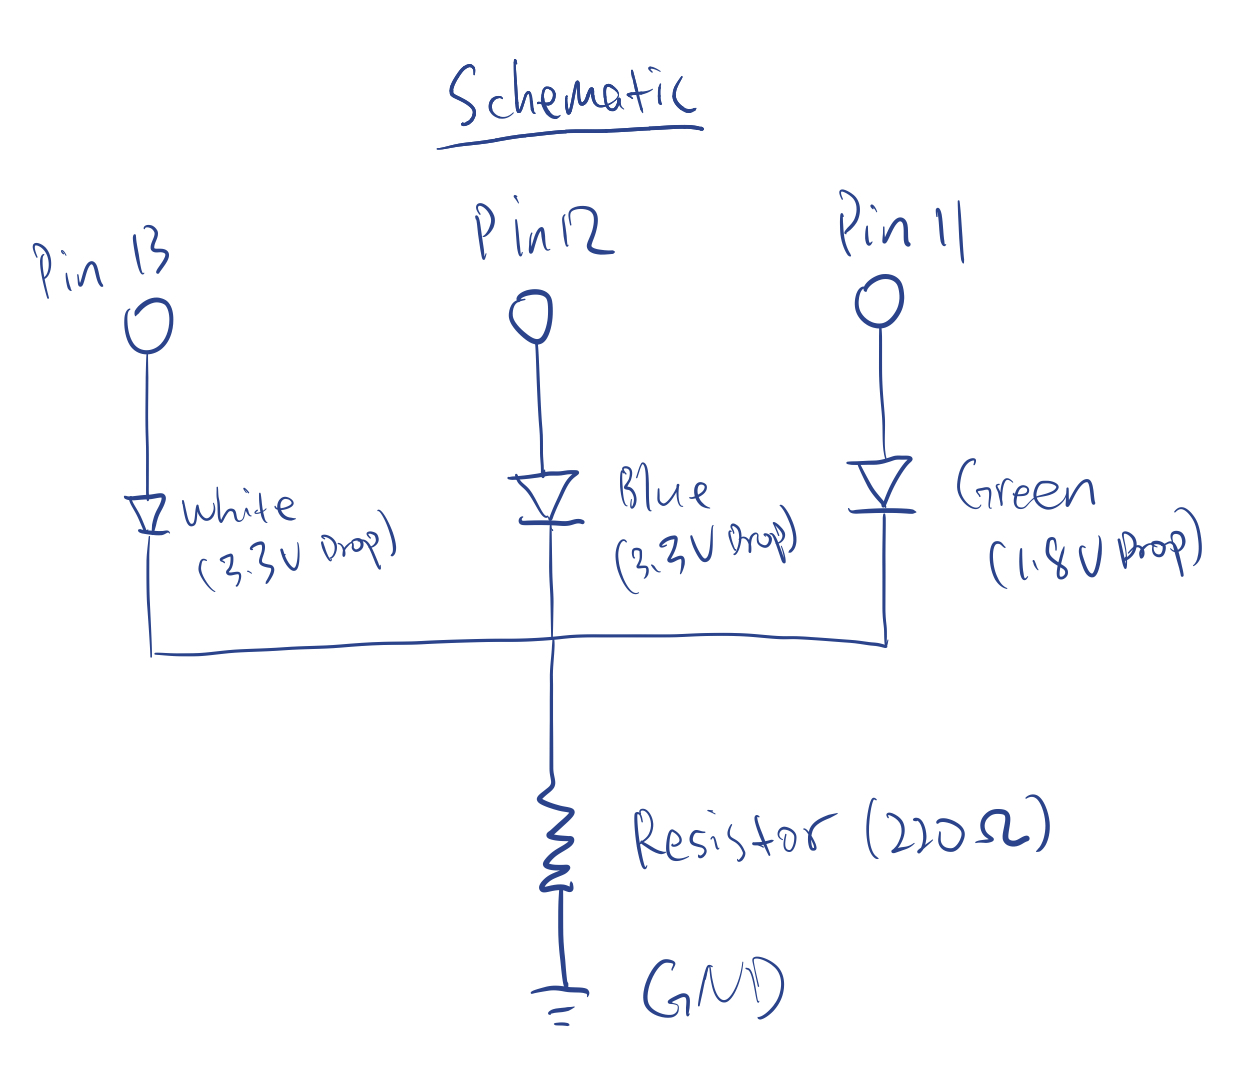 Schematic
Pin 13
Pin 12
Pin 11
White
(3.3V Drop)
Blue
(3.3V Drop)
Green
(1.8V Drop)
Resistor (220Ω)
GND